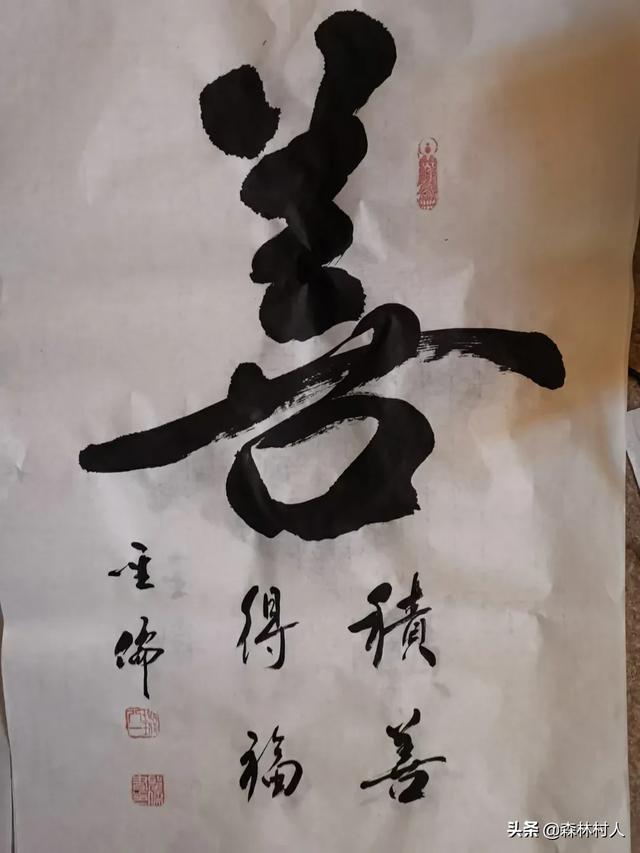 善
積善
得福
头条 @森林村人